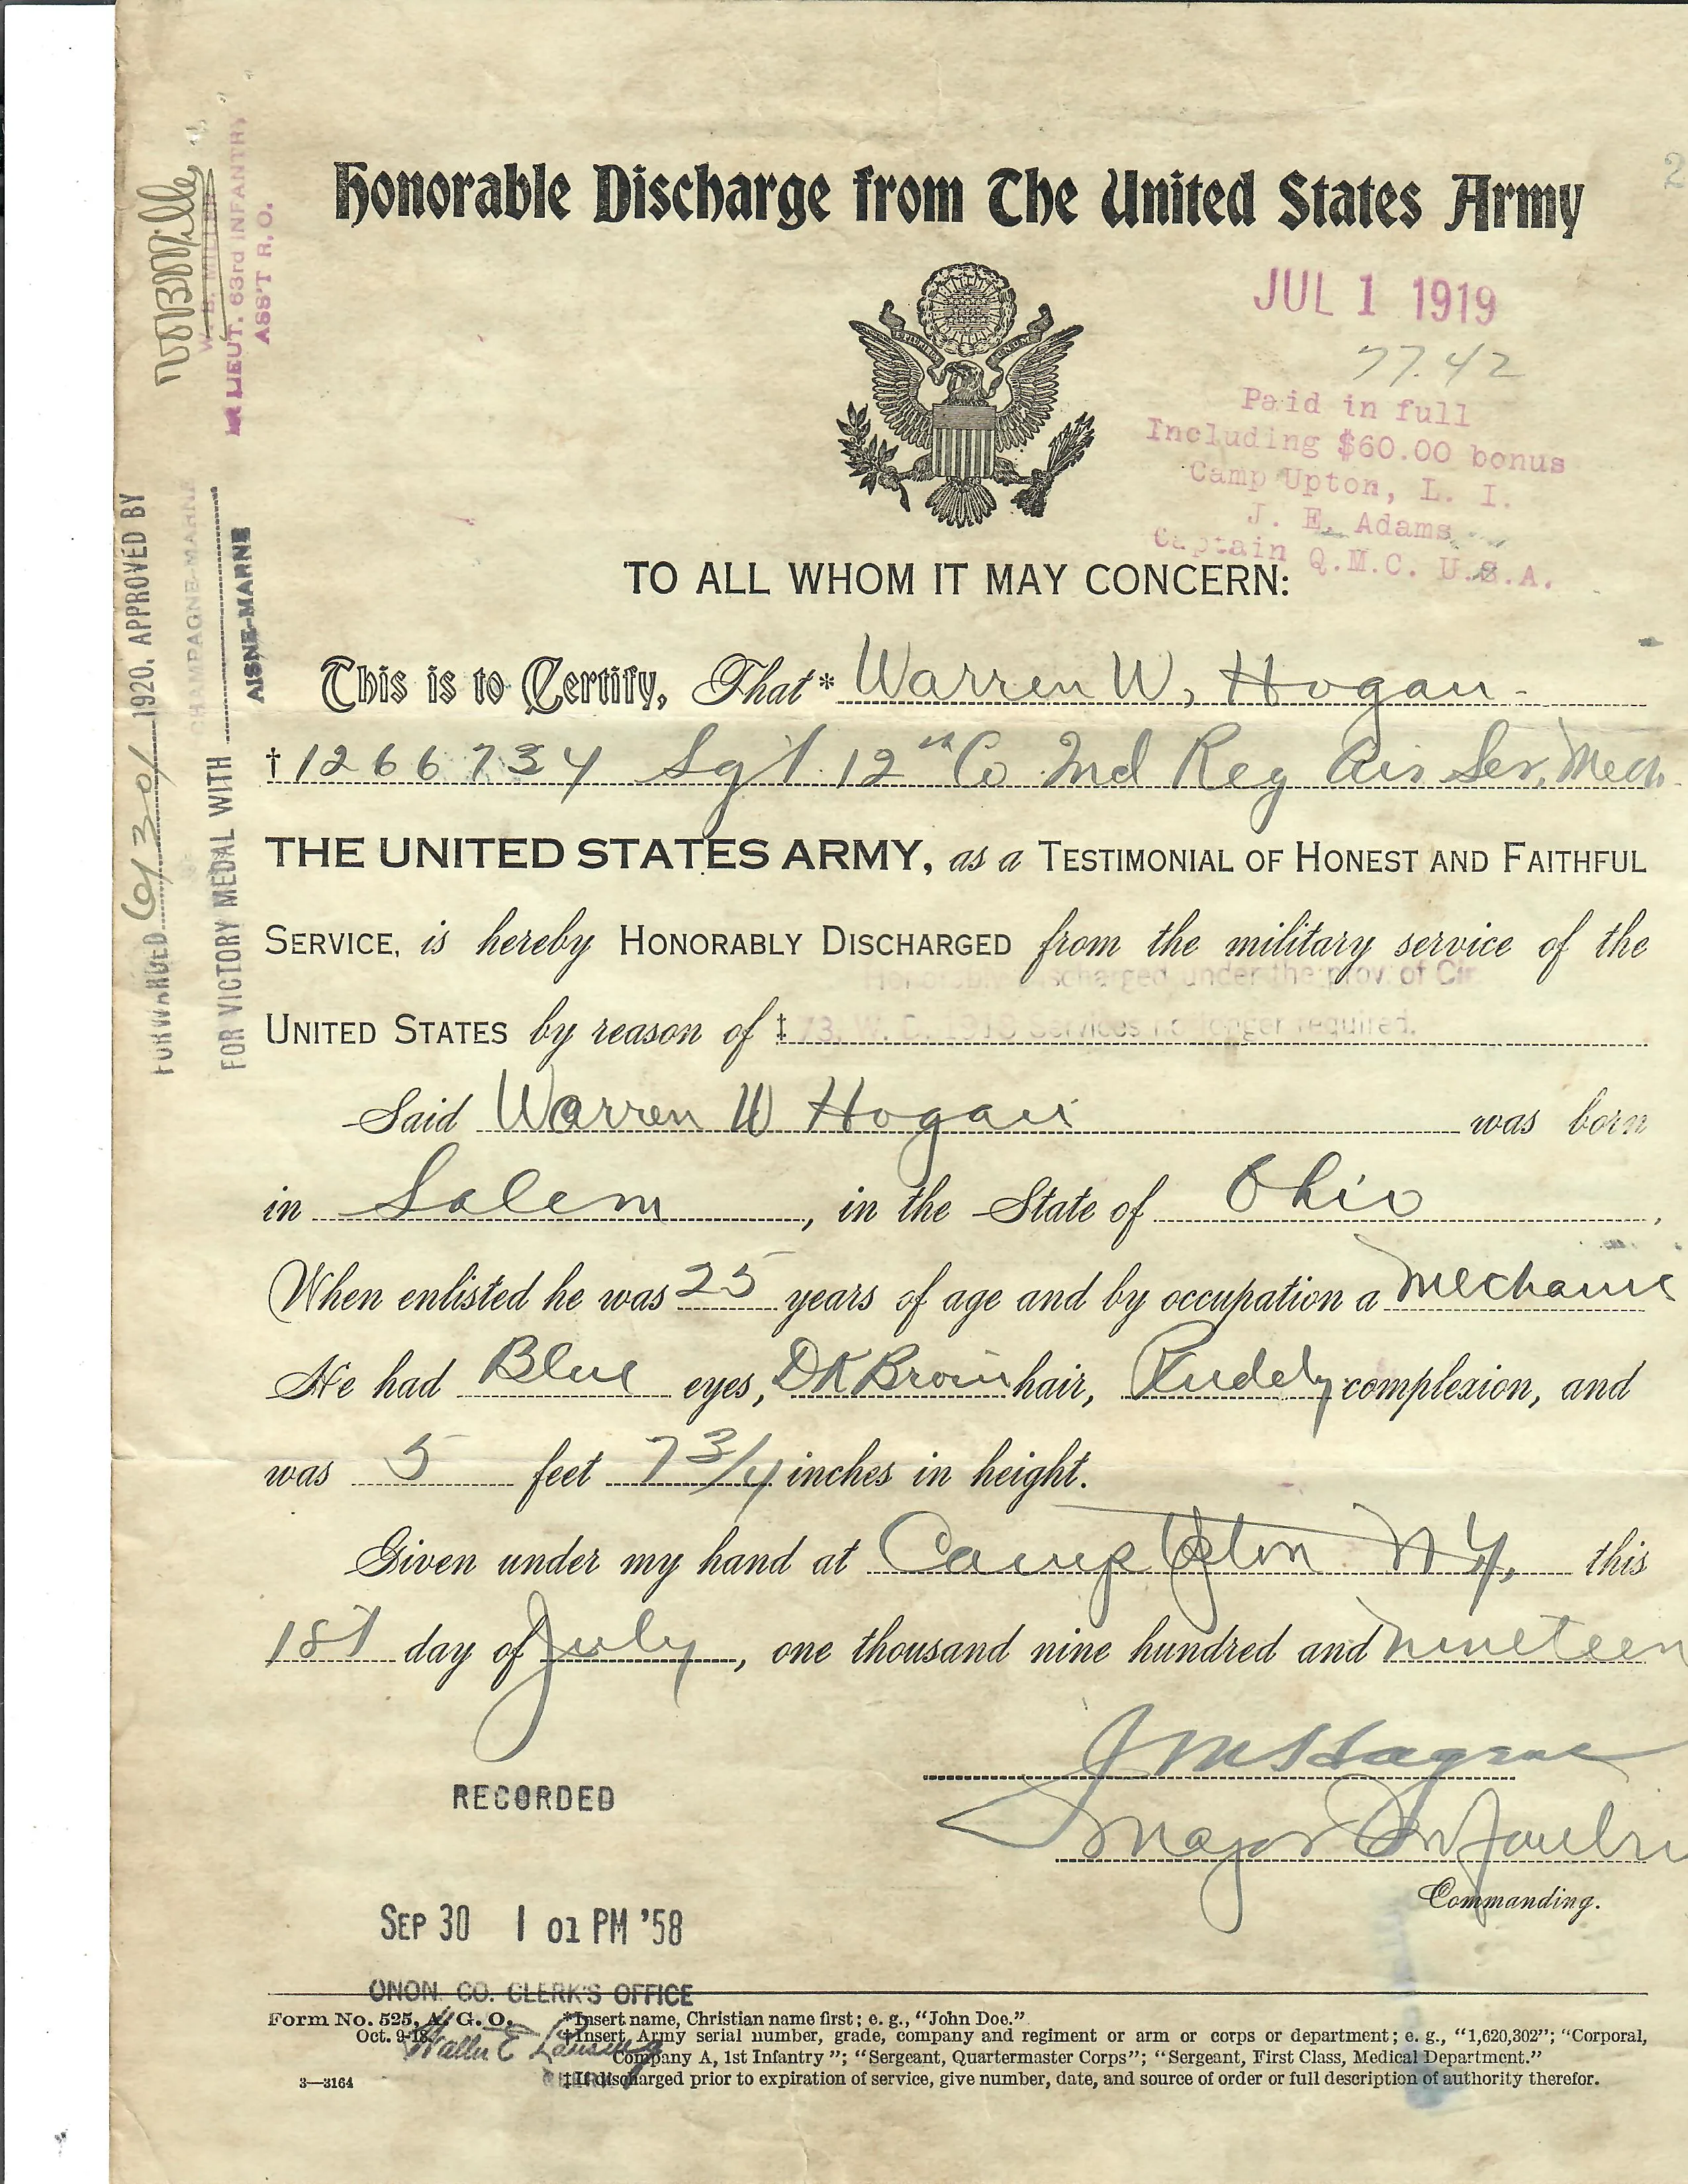 Honorable Discharge from The United States Army
2
JUL 1 1919
77.42
E PLURIBUS UNUM
Paid in full
Including $60.00 bonus
Camp Upton, L. I.
J. E. Adams
Captain Q.M.C. U.S.A.
TO ALL WHOM IT MAY CONCERN:
This is to Certify, That* Warren W. Hogan
†1266734 Sgt. 12th Co 2nd Reg Air Ser. Mech.
THE UNITED STATES ARMY, as a TESTIMONIAL OF HONEST AND FAITHFUL
SERVICE, is hereby HONORABLY DISCHARGED from the military service of the
Honorably discharged under the prov. of Cir
UNITED STATES by reason of ‡ 73, W. D. 1918 Services no longer required.
Said Warren W Hogan was born
in Salem, in the State of Ohio,
When enlisted he was 25 years of age and by occupation a Mechanic
He had Blue eyes, DK Brown hair, Ruddy complexion, and
was 5 feet 7 3/4 inches in height.
Given under my hand at Camp Upton N.Y., this
1st day of July, one thousand nine hundred and nineteen
Major Infantry
Commanding.
RECORDED
SEP 30 1 01 PM '58
ONON. CO. CLERK'S OFFICE
CLERK
Form No. 525, A. G. O.
Oct. 9-18.
3—3164
*Insert name, Christian name first; e. g., "John Doe."
†Insert Army serial number, grade, company and regiment or arm or corps or department; e. g., "1,620,302"; "Corporal,
Company A, 1st Infantry"; "Sergeant, Quartermaster Corps"; "Sergeant, First Class, Medical Department."
‡If discharged prior to expiration of service, give number, date, and source of order or full description of authority therefor.
FORWARDED 6/30/ 1920, APPROVED BY
FOR VICTORY MEDAL WITH
CHAMPAGNE-MARNE
AISNE-MARNE
W B Miller
W. B. MILLER
LIEUT. 63rd INFANTRY
ASS'T R. O.